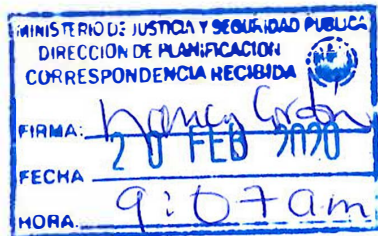 MINISTERIO DE JUSTICIA Y SEGURIDAD PUBLICA
DIRECCIÓN DE PLANIFICACION
CORRESPONDENCIA RECIBIDA
FIRMA: Nancy Cordon
FECHA 20 FEB 2020
HORA. 9:07am